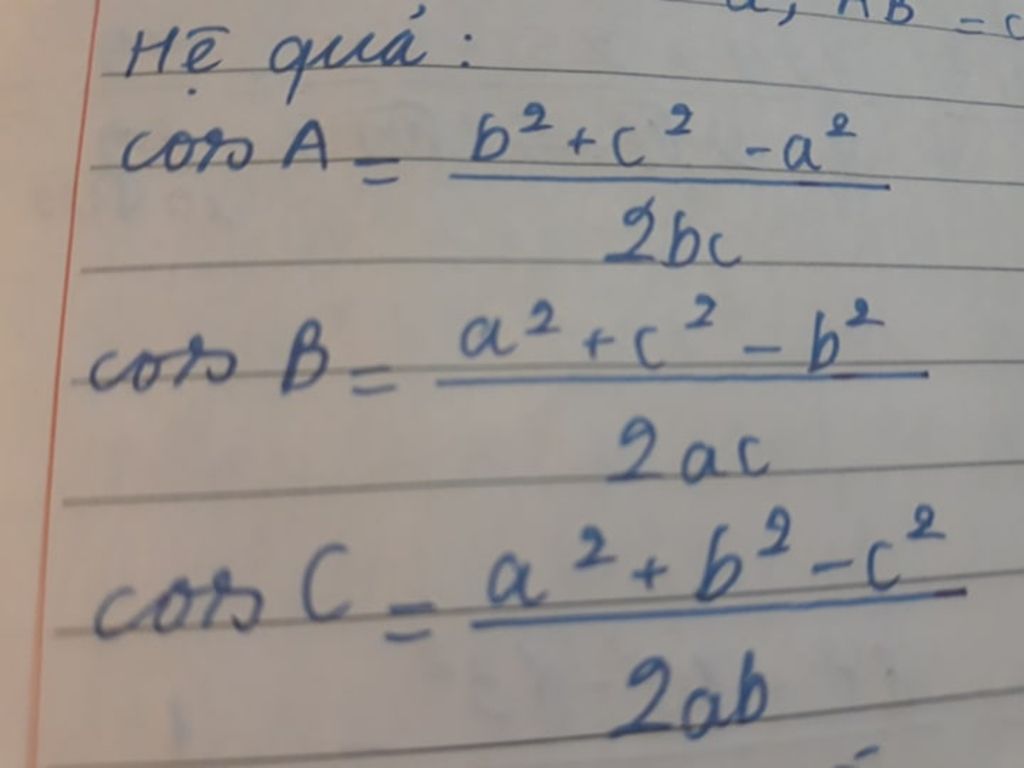 a, AB = c
Hệ quả:
cos A = b² + c² - a² / 2bc
cos B = a² + c² - b² / 2ac
cos C = a² + b² - c² / 2ab